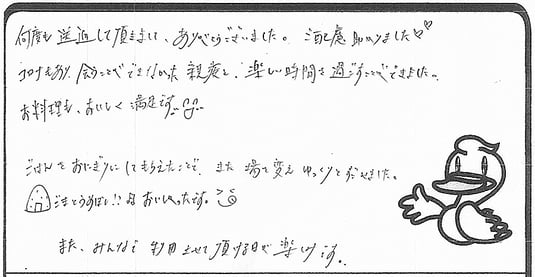 何度も送迎して頂きまして、ありがとうございました。ご配慮助かりました♡♡
コロナもあり、会うことができなかった親族と、楽しい時間を過ごすことができました。
お料理も、おいしく満足です。
ごはんをおにぎりにしてもらえたことで、また場を変えゆっくりと だせました。
ごまとうめぼし!! おいしかったです。
また、みんなで利用させて頂ける日が楽しみです。